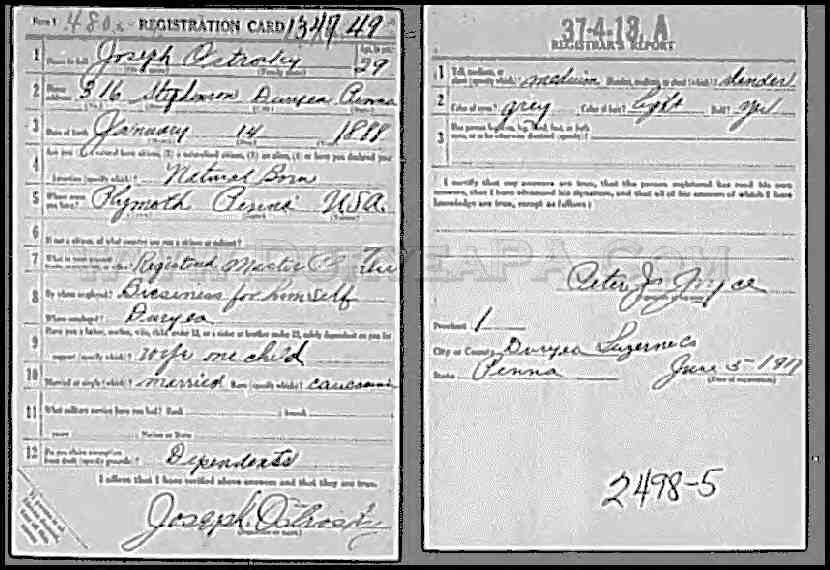 Form 1 480 REGISTRATION CARD 1349 49
1 Joseph Ostrosky 29
2 316 Stephenson Duryea Penna
3 Date of birth January 14 1888
4 Are you (1) a natural born citizen, (2) a naturalized citizen, (3) an alien, (4) or have you declared your
intention (specify which)? Natural Born
5 Where were you born? Plymoth Penna U.S.A.
6 If not a citizen, of what country are you a citizen or subject?
7 What is your present Registered
8 By whom employed? Business for himself
Where employed? Duryea
9 Have you a father, mother, wife, child under 12, or a sister or brother under 12, solely dependent on you for
support (specify which)? Wife one child
10 Married or single (which)? married Race (specify which)? Caucasian
11 What military service have you had? Rank branch
years Nation or State
12 Do you claim exemption from draft (specify grounds)? Dependents
I affirm that I have verified above answers and that they are true.
Joseph Ostrosky
37-4-18. A
REGISTRAR'S REPORT
1 Tall, medium, or short (specify which)? medium Slender, medium, or stout (which)? slender
2 Color of eyes? grey Color of hair? light Bald?
3 Has person lost arm, leg, hand, foot, or both
I certify that my answers are true, that the person registered has read his own
answers, that I have witnessed his signature, and that all of his answers of which I have
knowledge are true, except as follows:
DURYEAPA.COM
Peter J. Joyce
Precinct 1
City or County Duryea Luzerne Co
State Penna June 5 1917
(Date of registration)
2498-5